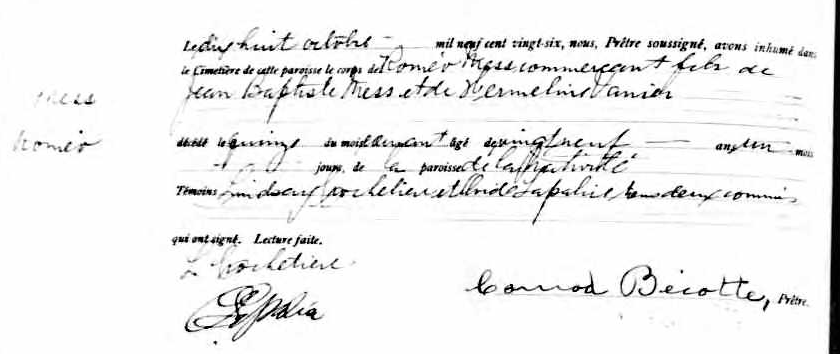 Le dix huit octobre — mil neuf cent vingt-six, nous, Prêtre soussigné, avons inhumé dans
le Cimetière de cette paroisse le corps de Roméo Mess, commerçant fils de
Jean Baptiste Mess et de Hermeline Vanier
Mess
Roméo
décédé le quinze du mois courant âgé de vingt neuf — ans, un mois
jours, de la paroisse de la Nativité
Témoins Lindsay Rochetiere et André Lapalice, tous deux commis
qui ont signé. Lecture faite.
L Rochetiere
Conrad Bécotte, Prêtre.